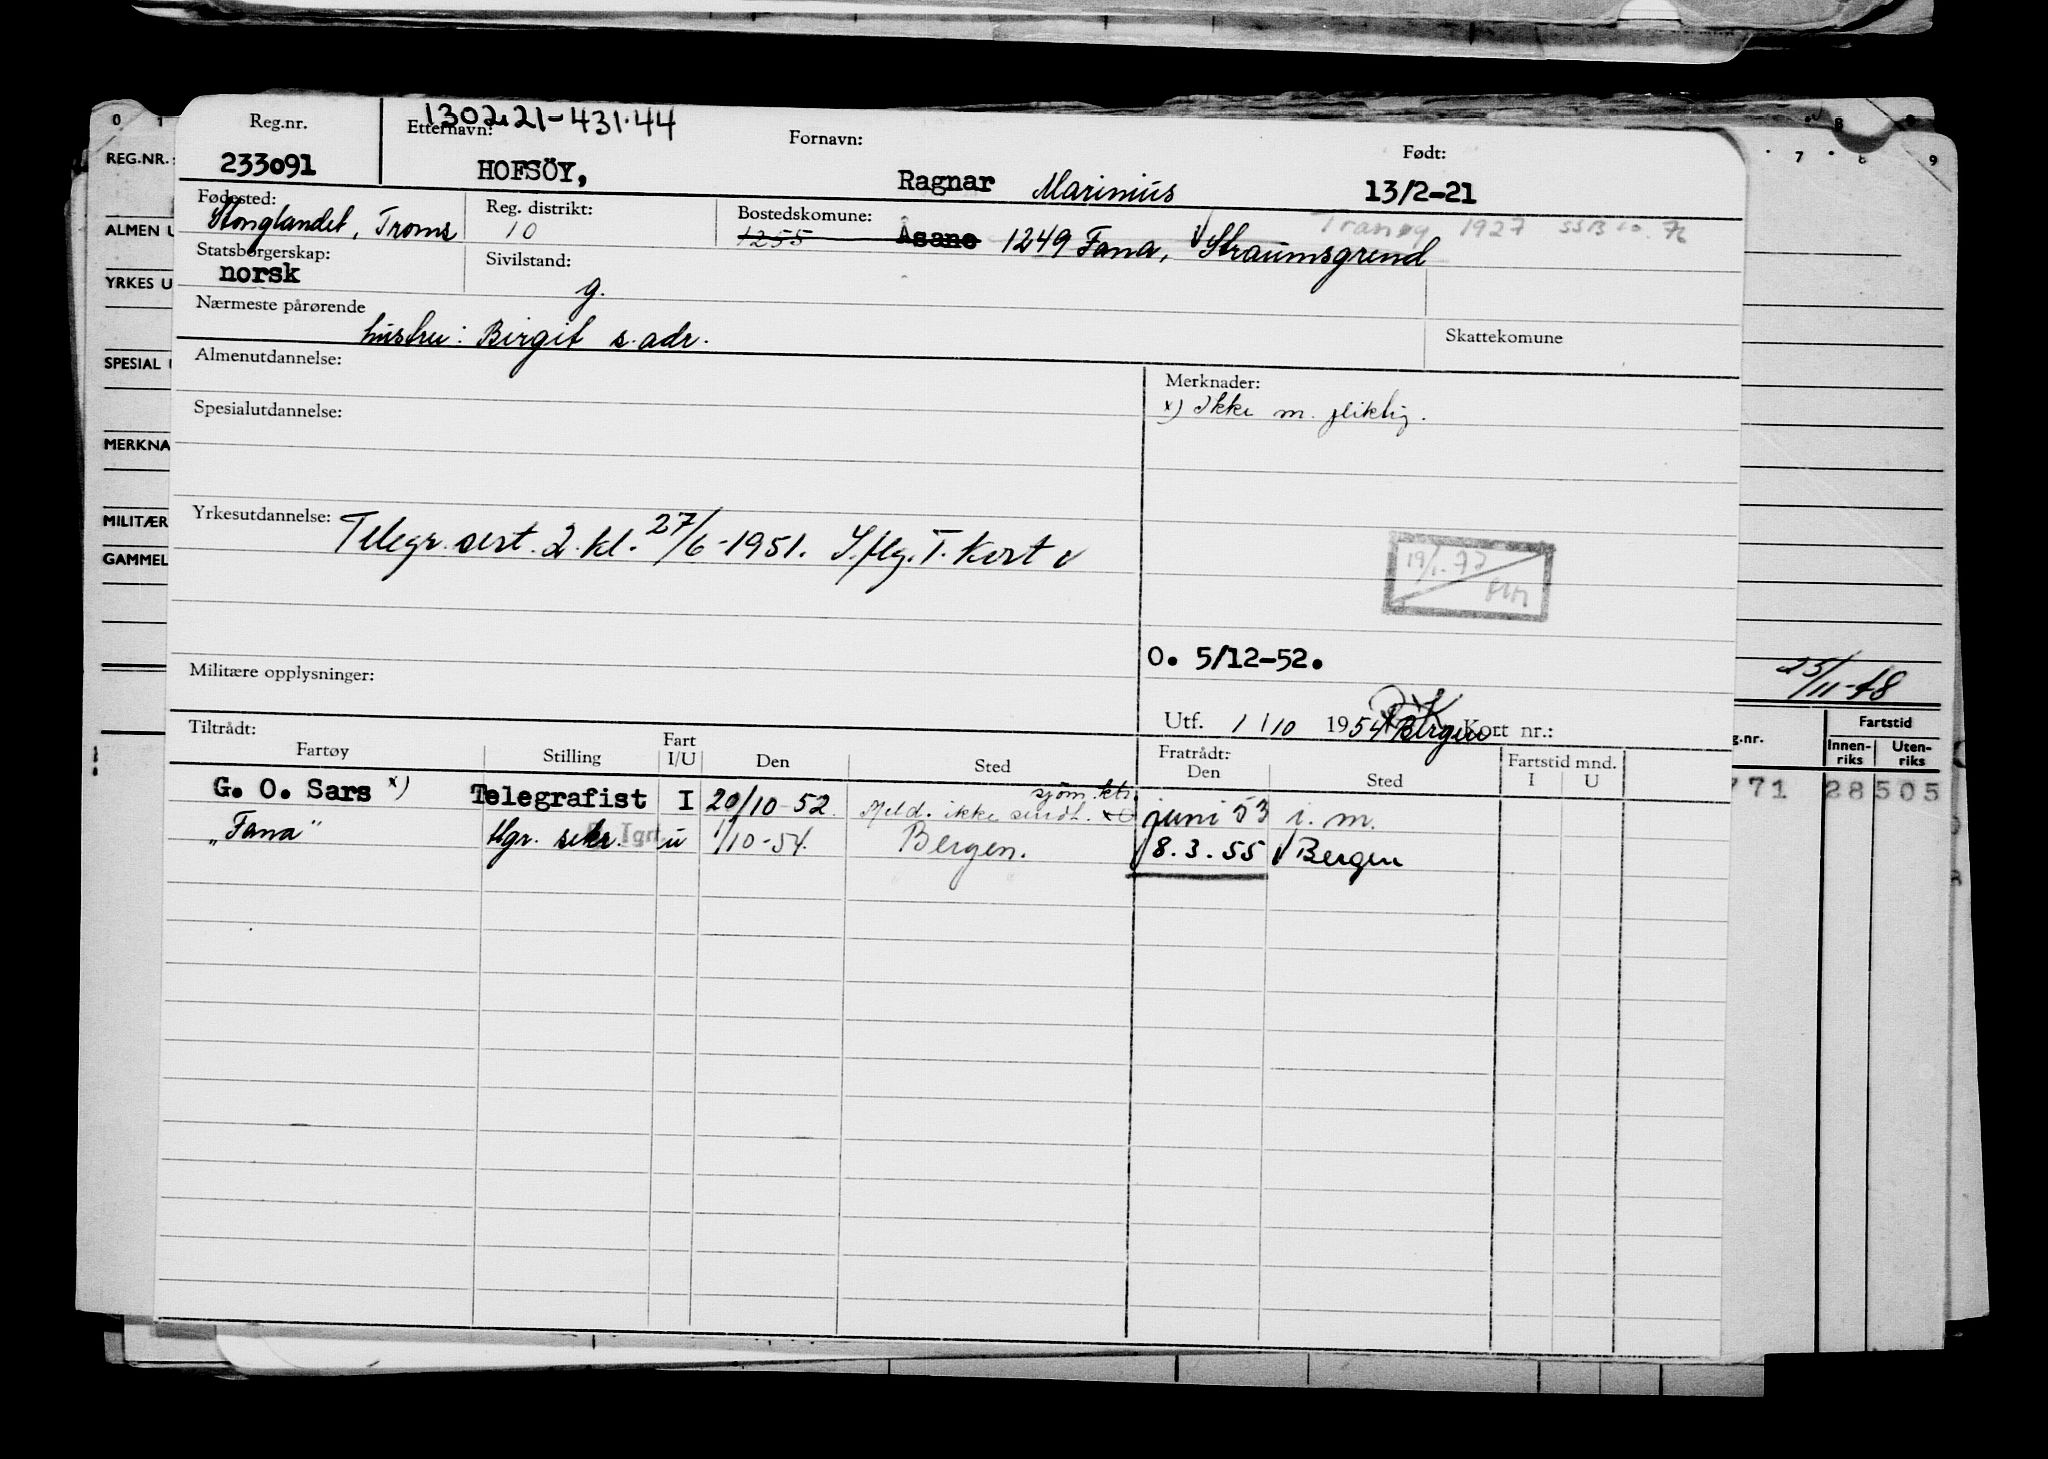 130221-431.44
Reg.nr. Etternavn: Fornavn: Født:
233091 HOFSÖY, Ragnar Marinius 13/2-21
Fødested: Reg. distrikt: Bostedskomune:
Stonglandet, Troms 10 1255 Åsane 1249 Fana, Straumsgrend
Tranøy 1927 SSB 10.76
Statsborgerskap: Sivilstand:
norsk g.
Nærmeste pårørende
hustru: Birgit s. adr.
Skattekomune
Almenutdannelse: Merknader:
x) Ikke m. pliktig.
Spesialutdannelse:
Yrkesutdannelse: Telegr. sert. 2. kl. 27/6-1951. I flg. T. Kort
19/1.77
O. 5/12-52.
Militære opplysninger:
Utf. 1/10 1954 Bergen Kort nr.:
Tiltrådt: Fratrådt:
Fartøy Stilling Fart I/U Den Sted Den Sted Fartstid mnd. I U
G. O. Sars x) Telegrafist I 20/10-52 Meld. ikke sendt. sjøm. ktr. juni 53 i. m.
"Fana" tlgr. sekr. u 1/10-54. Bergen. 8.3.55 Bergen
0 1 7 8 9
REG.NR.:
ALMEN U
YRKES U
SPESIAL
MERKNA
MILITÆR
GAMMEL
25/11-48
g.nr. Fartstid
Innen-riks Uten-riks
771 28 505